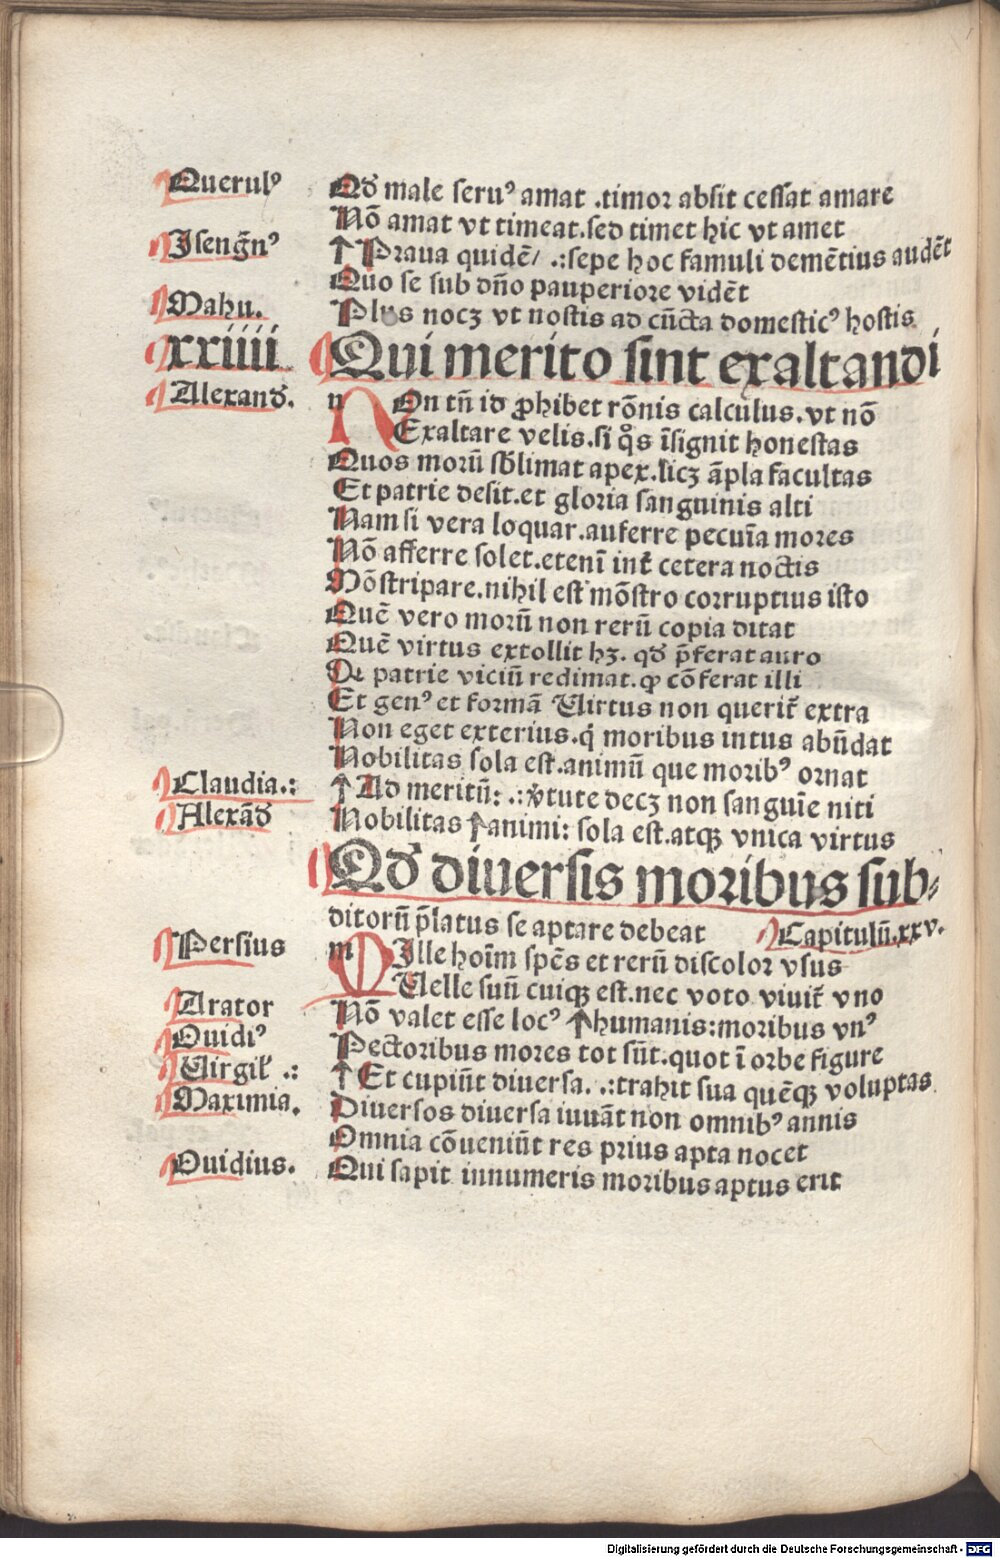 Querulꝰ
Qd̛ male seruꝰ amat .timor absit cessat amare
Nō amat vt timeat.sed timet hic vt amet
Isengr̄nꝰ
↑ Praua quidē/ .:sepe hoc famuli demētius audēt
Quo se sub dn̄o pauperiore vidēt
Mahu.
Plus nocꝫ vt nostis ad cūcta domesticꝰ hostis
xxiiii
Qui merito sint exaltandi
Alexand̛.
n NOn tn̄ id ꝓhibet rōnis calculus.vt nō
Exaltare velis.si qͦs īsignit honestas
Quos morū sb̄limat apex.licꝫ āpla facultas
Et patrie desit.et gloria sanguinis alti
Nam si vera loquar.auferre pecuīa mores
Nō afferre solet.etenī int̄ cetera noctis
Mōstripare.nihil est mōstro corruptius isto
Quē vero morū non rerū copia ditat
Quē virtus extollit hꝫ. qd̛ p̄ferat auro
Qꝛ patrie viciū redimat.ꝙ cōferat illi
Et genꝰ et formā Uirtus non querit̄ extra
Non eget exterius.q̇ moribus intus abūdat
Nobilitas sola est.animū que moribꝰ ornat
Claudia.:
↑ Ad meritū: .:v̓tute decꝫ non sanguīe niti
Alexād̛
Nobilitas ↑ animi: sola est.atqꝫ vnica virtus
Qd̛ diuersis moribus sub⸗
ditorū p̄latus se aptare debeat Capitulū.xxv.
Persius
m MIlle hoīm spēs et rerū discolor vsus
Uelle suū cuiqꝫ est.nec voto viuit̄ vno
Arator
Nō valet esse locꝰ ↑ humanis:moribus vnꝰ
Ouidiꝰ
Pectoribus mores tot sūt.quot ī orbe figure
Uirgil̓ .:
↑ Et cupiūt diuersa. .:trahit sua quēqꝫ voluptas
Maximia.
Diuersos diuersa iuuāt non omnibꝰ annis
Omnia cōueniūt res prius apta nocet
Ouidius.
Qui sapit innumeris moribus aptus erit
Digitalisierung gefördert durch die Deutsche Forschungsgemeinschaft - DFG